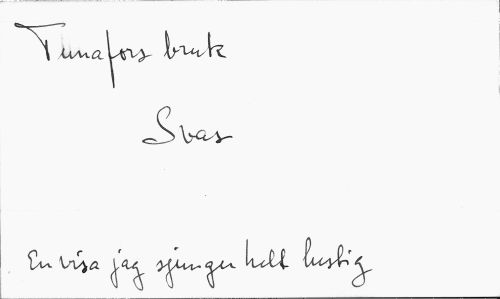 Tunafors bruk
Svas
En visa jag sjunger helt lustig